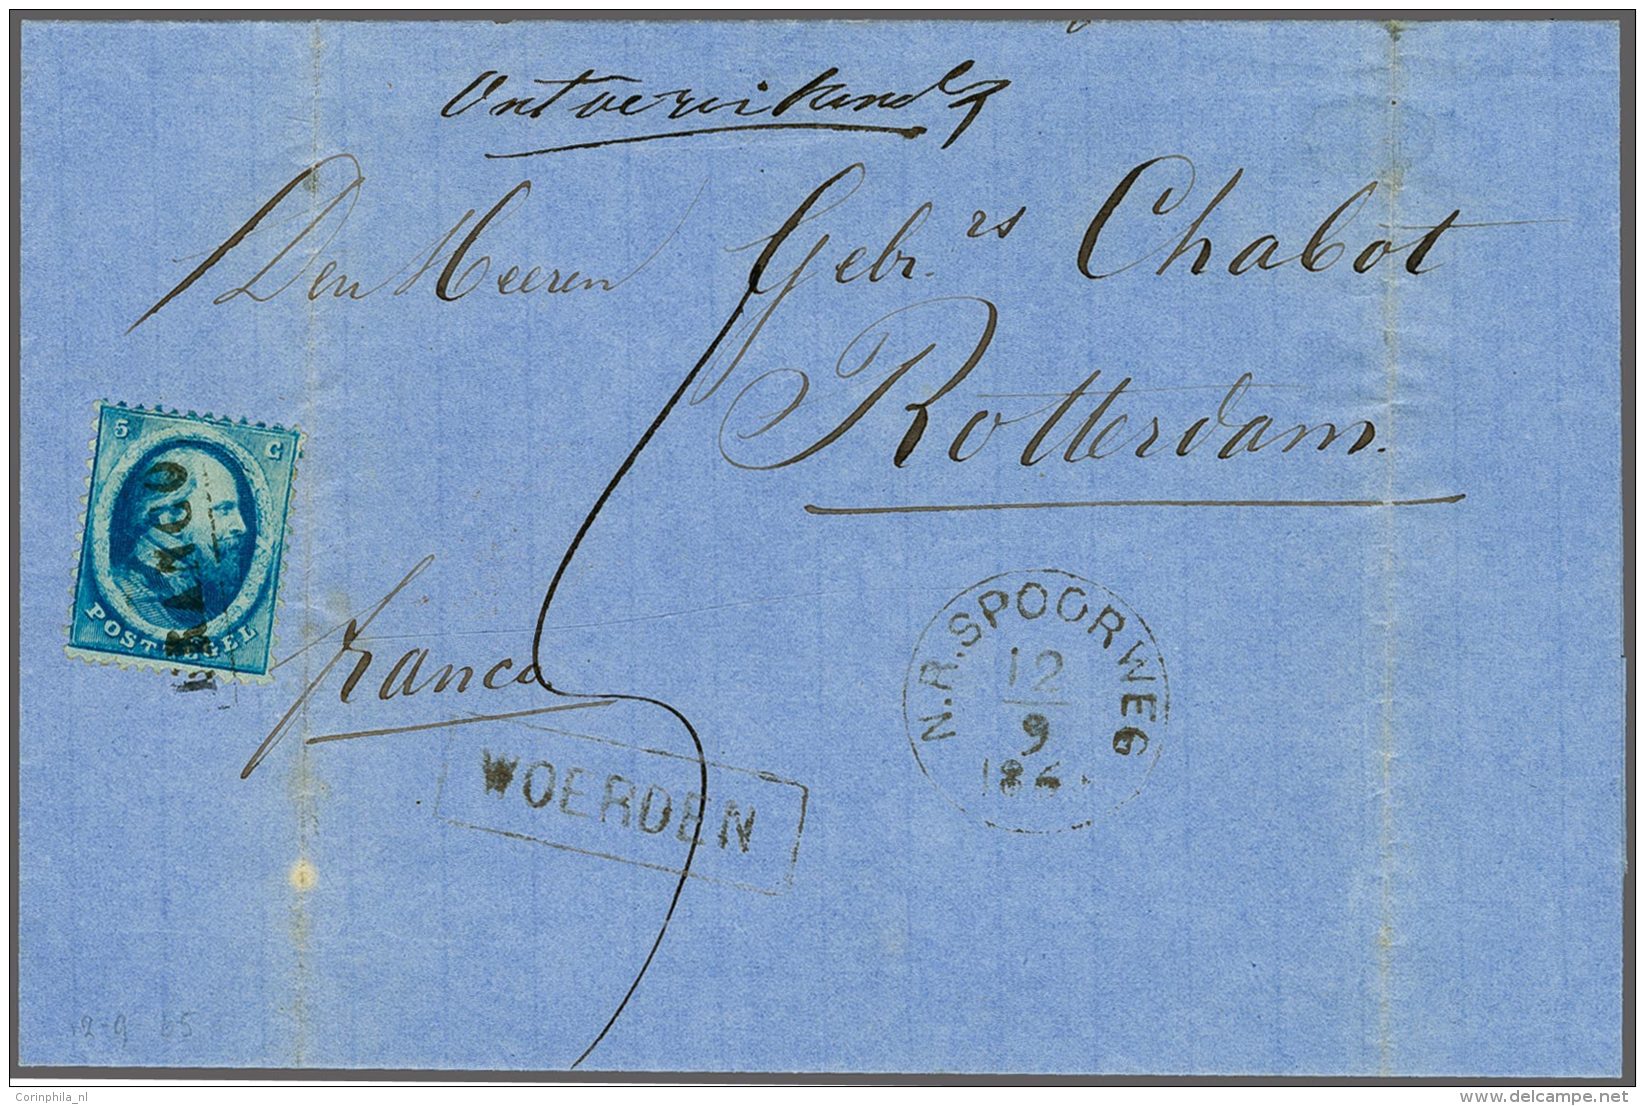 Den Heeren Gebr.rs Chabot
Rotterdam.
5 C
FRANCO
POSTZEGEL
franco
N.R.SPOORWEG
12
9
WOERDEN
12-9 65
Corinphila_nl
www.delcampe.net